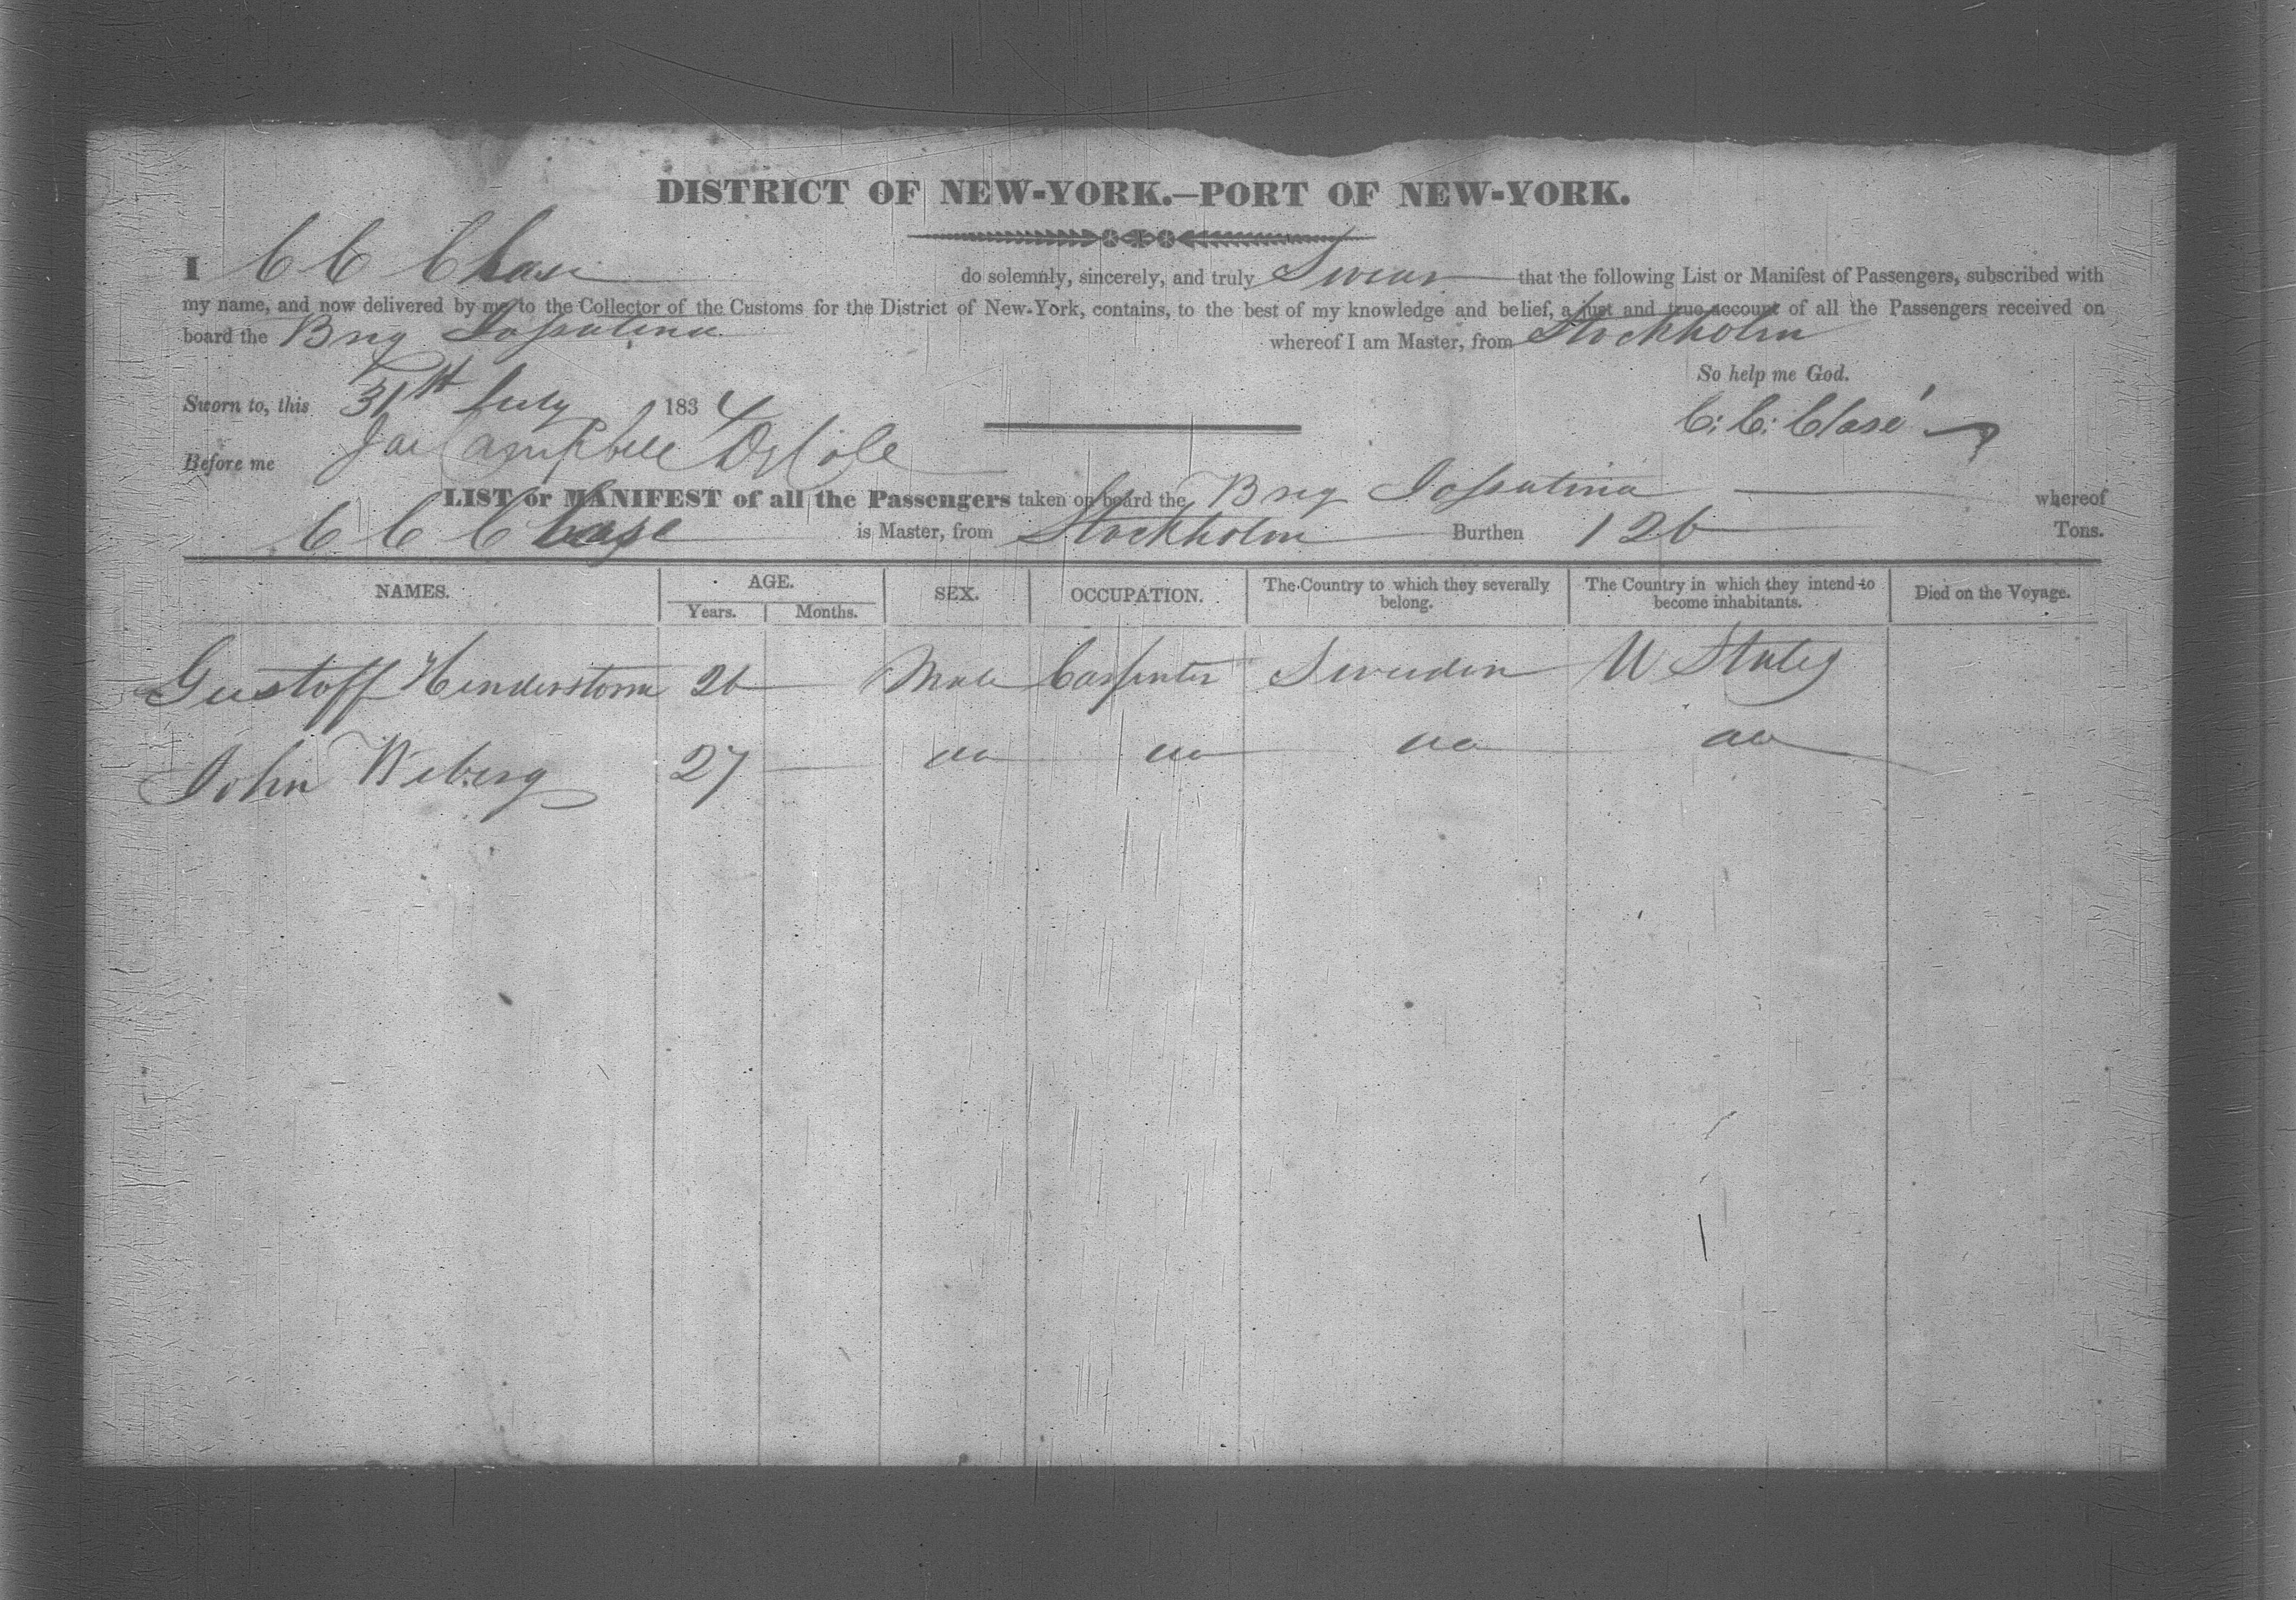 DISTRICT OF NEW-YORK.—PORT OF NEW-YORK.
I C C Chase do solemnly, sincerely, and truly Swear that the following List or Manifest of Passengers, subscribed with
my name, and now delivered by me to the Collector of the Customs for the District of New-York, contains, to the best of my knowledge and belief, a just and true account of all the Passengers received on
board the Brig whereof I am Master, from Stockholm
So help me God.
Sworn to, this 31st July 1834
C: C: Clasé
Before me Jas Campbell
LIST or MANIFEST of all the Passengers taken on board the Brig whereof
C C Chase is Master, from Stockholm Burthen 126 Tons.
NAMES. AGE. SEX. OCCUPATION. The Country to which they severally belong. The Country in which they intend to become inhabitants. Died on the Voyage.
Years. Months.
Gustoff Hinderstorm 26 Male Carpenter Sweeden U States
John Weberg 27 do do do do